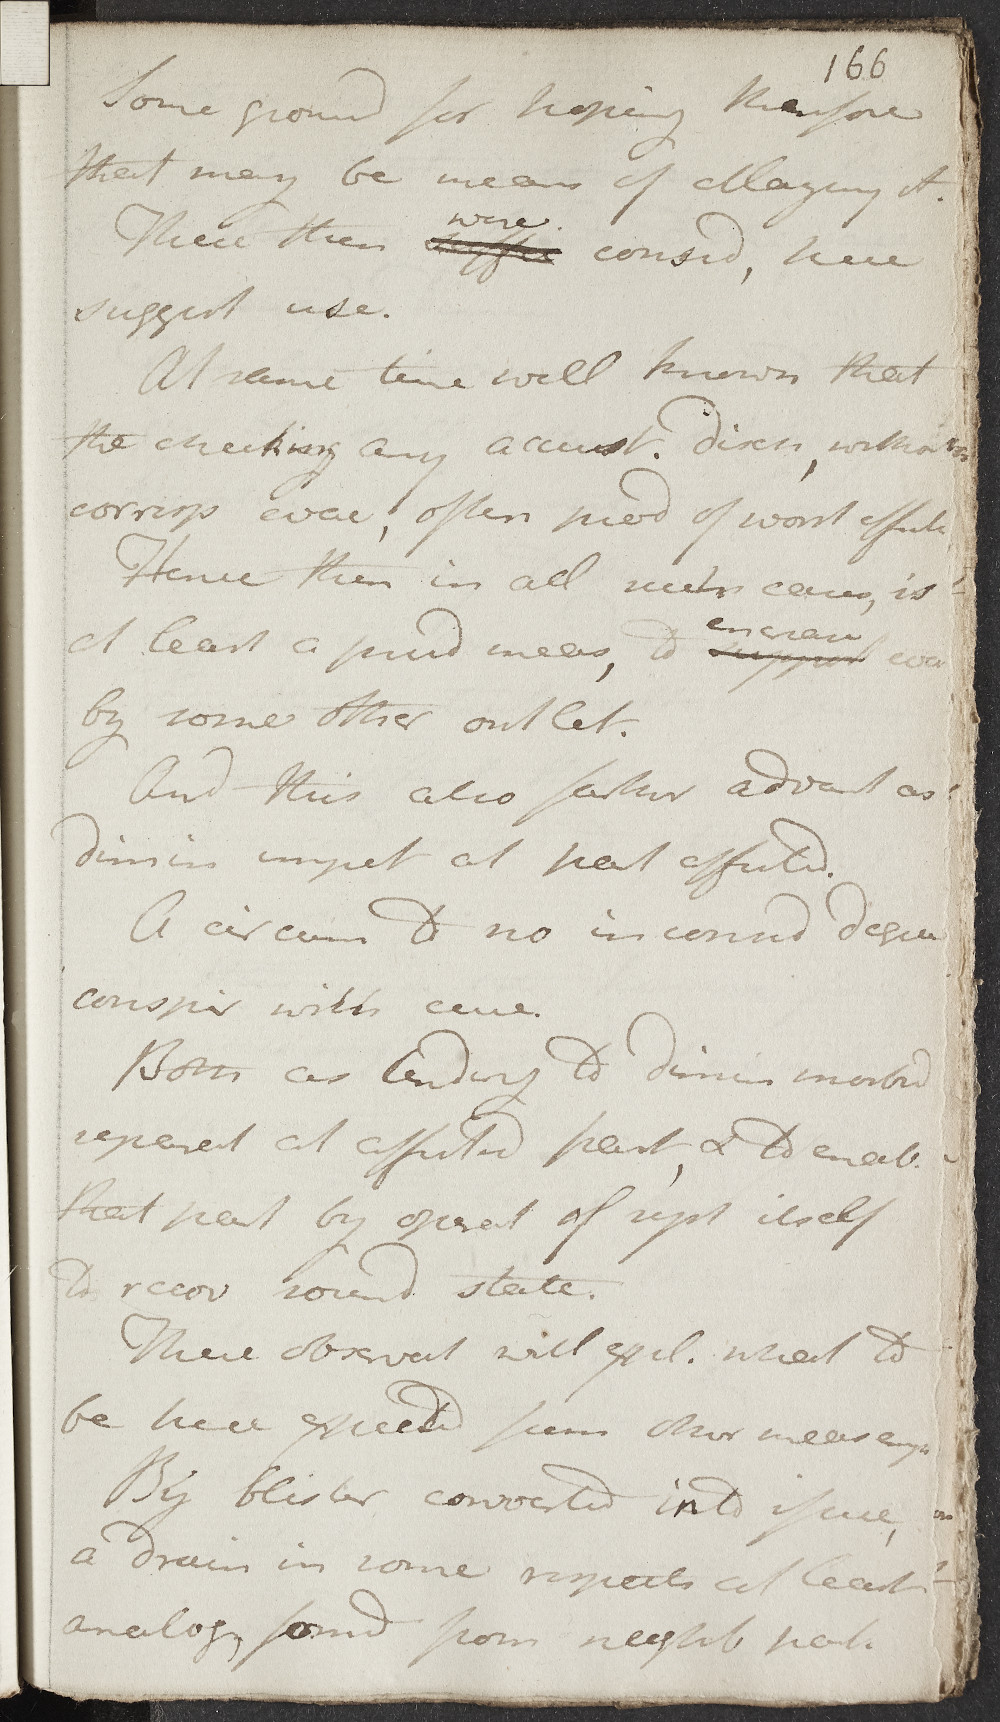 166
Some ground for hoping therefore
that may be means of allaying it.
were
These then consid, here
suggest use.
At same time well known that
the checking any accust. disch, without
corresp evac, often prod of worst effects
Hence then in all such cases, is
at least a prud meas, to
encrease
evac
by some other outlet.
And this also farther advant as
dimin impet at part affected.
A circum to no inconsid degree
conspir with cure.
Both as tending to dimin morbid
separat at affected part, & to enab.
that part by operat of syst itself
to recov sound state.
These observat will expl. what to
be here expected from other meas emp
By blister converted into issue, or
a drain in some respects at least
analog, formd from neighb part.